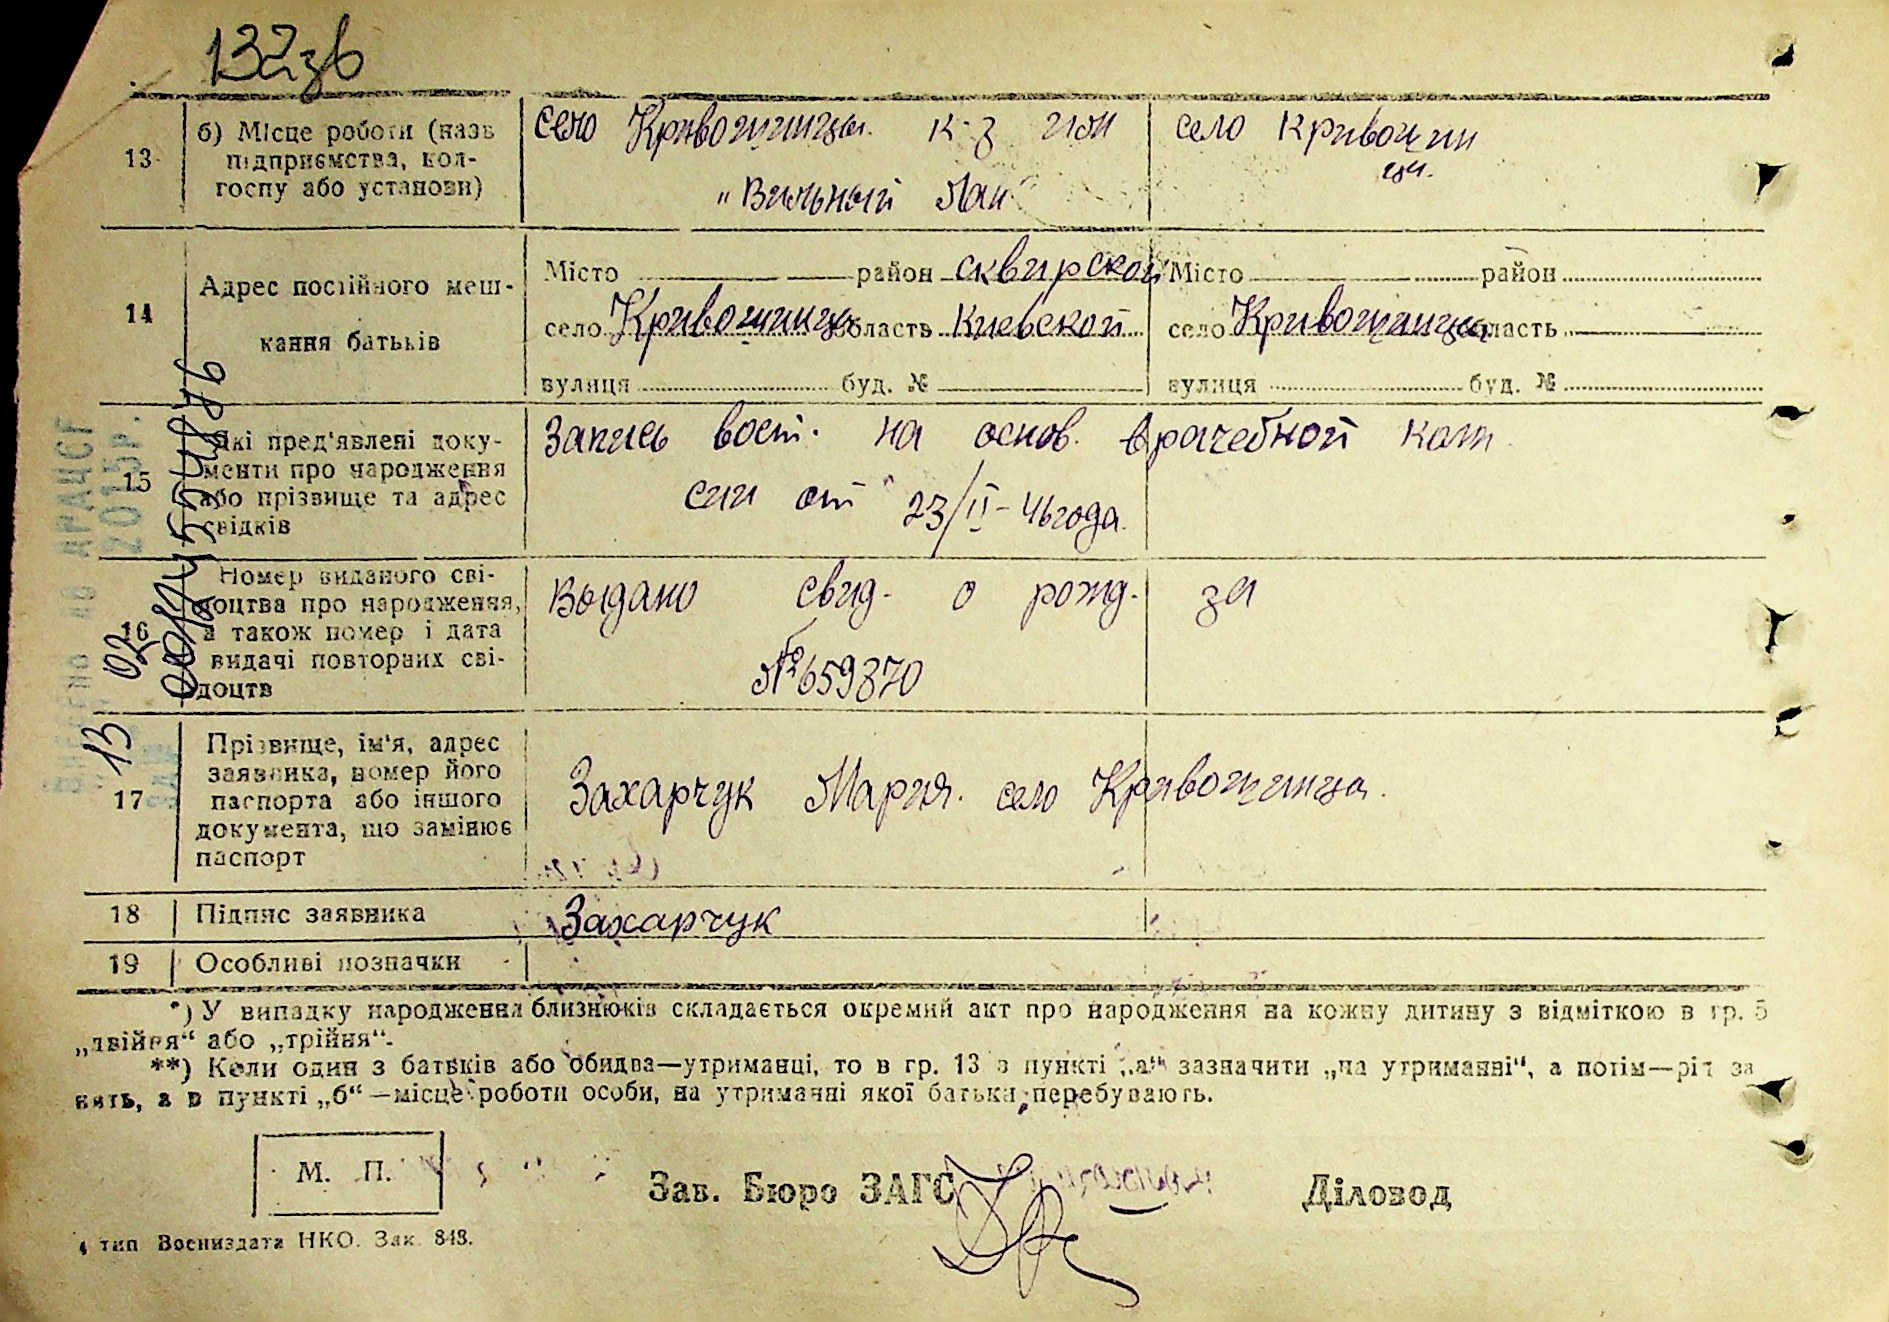 132зв
13 б) Місце роботи (назв підприємства, кол-госпу або установи)
село Кривошиинцы. к-з
"Вильный Лан"
село Кривошин
цы.
14 Адрес постійного меш-
кання батьків
Місто район сквирской
село Кривошинцы область Киевской
вулиця буд. №
Місто район
село Кривошинцы область
вулиця буд. №
15 Які пред'явлені доку-
менти про народження
або прізвище та адрес
свідків
Запись вост. на основ. врачебной ком
сии от 23/II-46 года.
16 Номер виданого сві-
доцтва про народження,
а також номер і дата
видачі повторних сві-
доцтв
Выдано свид. о рожд. за
№659870
17 Прізвище, ім'я, адрес
заявника, номер його
паспорта або іншого
документа, що замінює
паспорт
Захарчук Мария. село Кривошинцы.
18 Підпис заявника
Захарчук
19 Особливі позначки
*) У випадку народження близнюків складається окремий акт про народження на кожну дитину з відміткою в гр. 5
„двійня“ або „трійня“.
**) Коли один з батьків або обидва—утриманці, то в гр. 13 в пункті „а“ зазначити „на утриманні“, а потім—рід за
нять, а в пункті „б“—місце роботи особи, на утриманні якої батьки перебувають.
М. П.
Зав. Бюро ЗАГС
Діловод
4 тип Воениздата НКО. Зак. 848.
13 02
2015р.